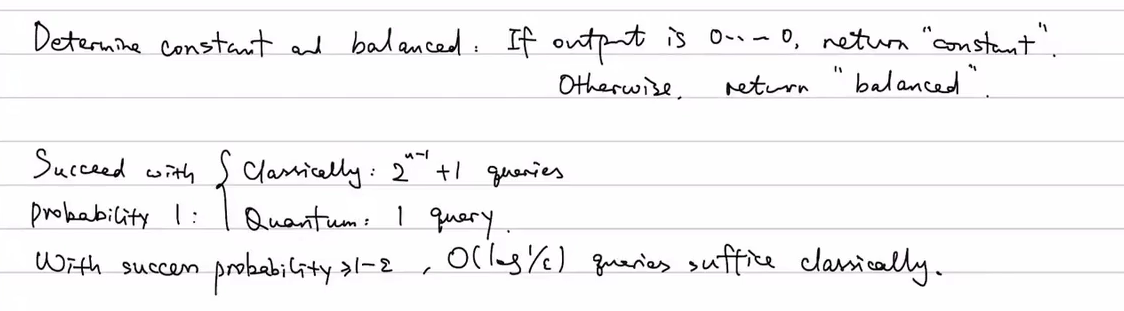 Determine constant and balanced: If output is 0---0, return "constant".
Otherwise, return "balanced".
Succeed with { Classically: 2^{n-1}+1 queries
probability 1: Quantum: 1 query.
With success probability ≥1-ε, O(log 1/ε) queries suffice classically.